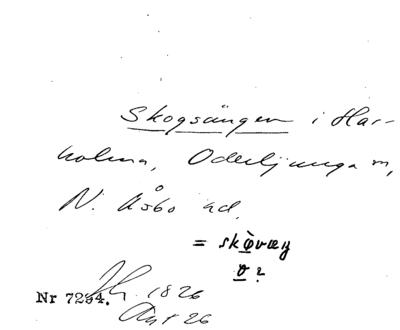 Skogsängen i Har-
kolma, Oderljunga sn,
N. Åsbo hd.
= skòvæŋ
o?
Nr 7294. 1826
Akt 26